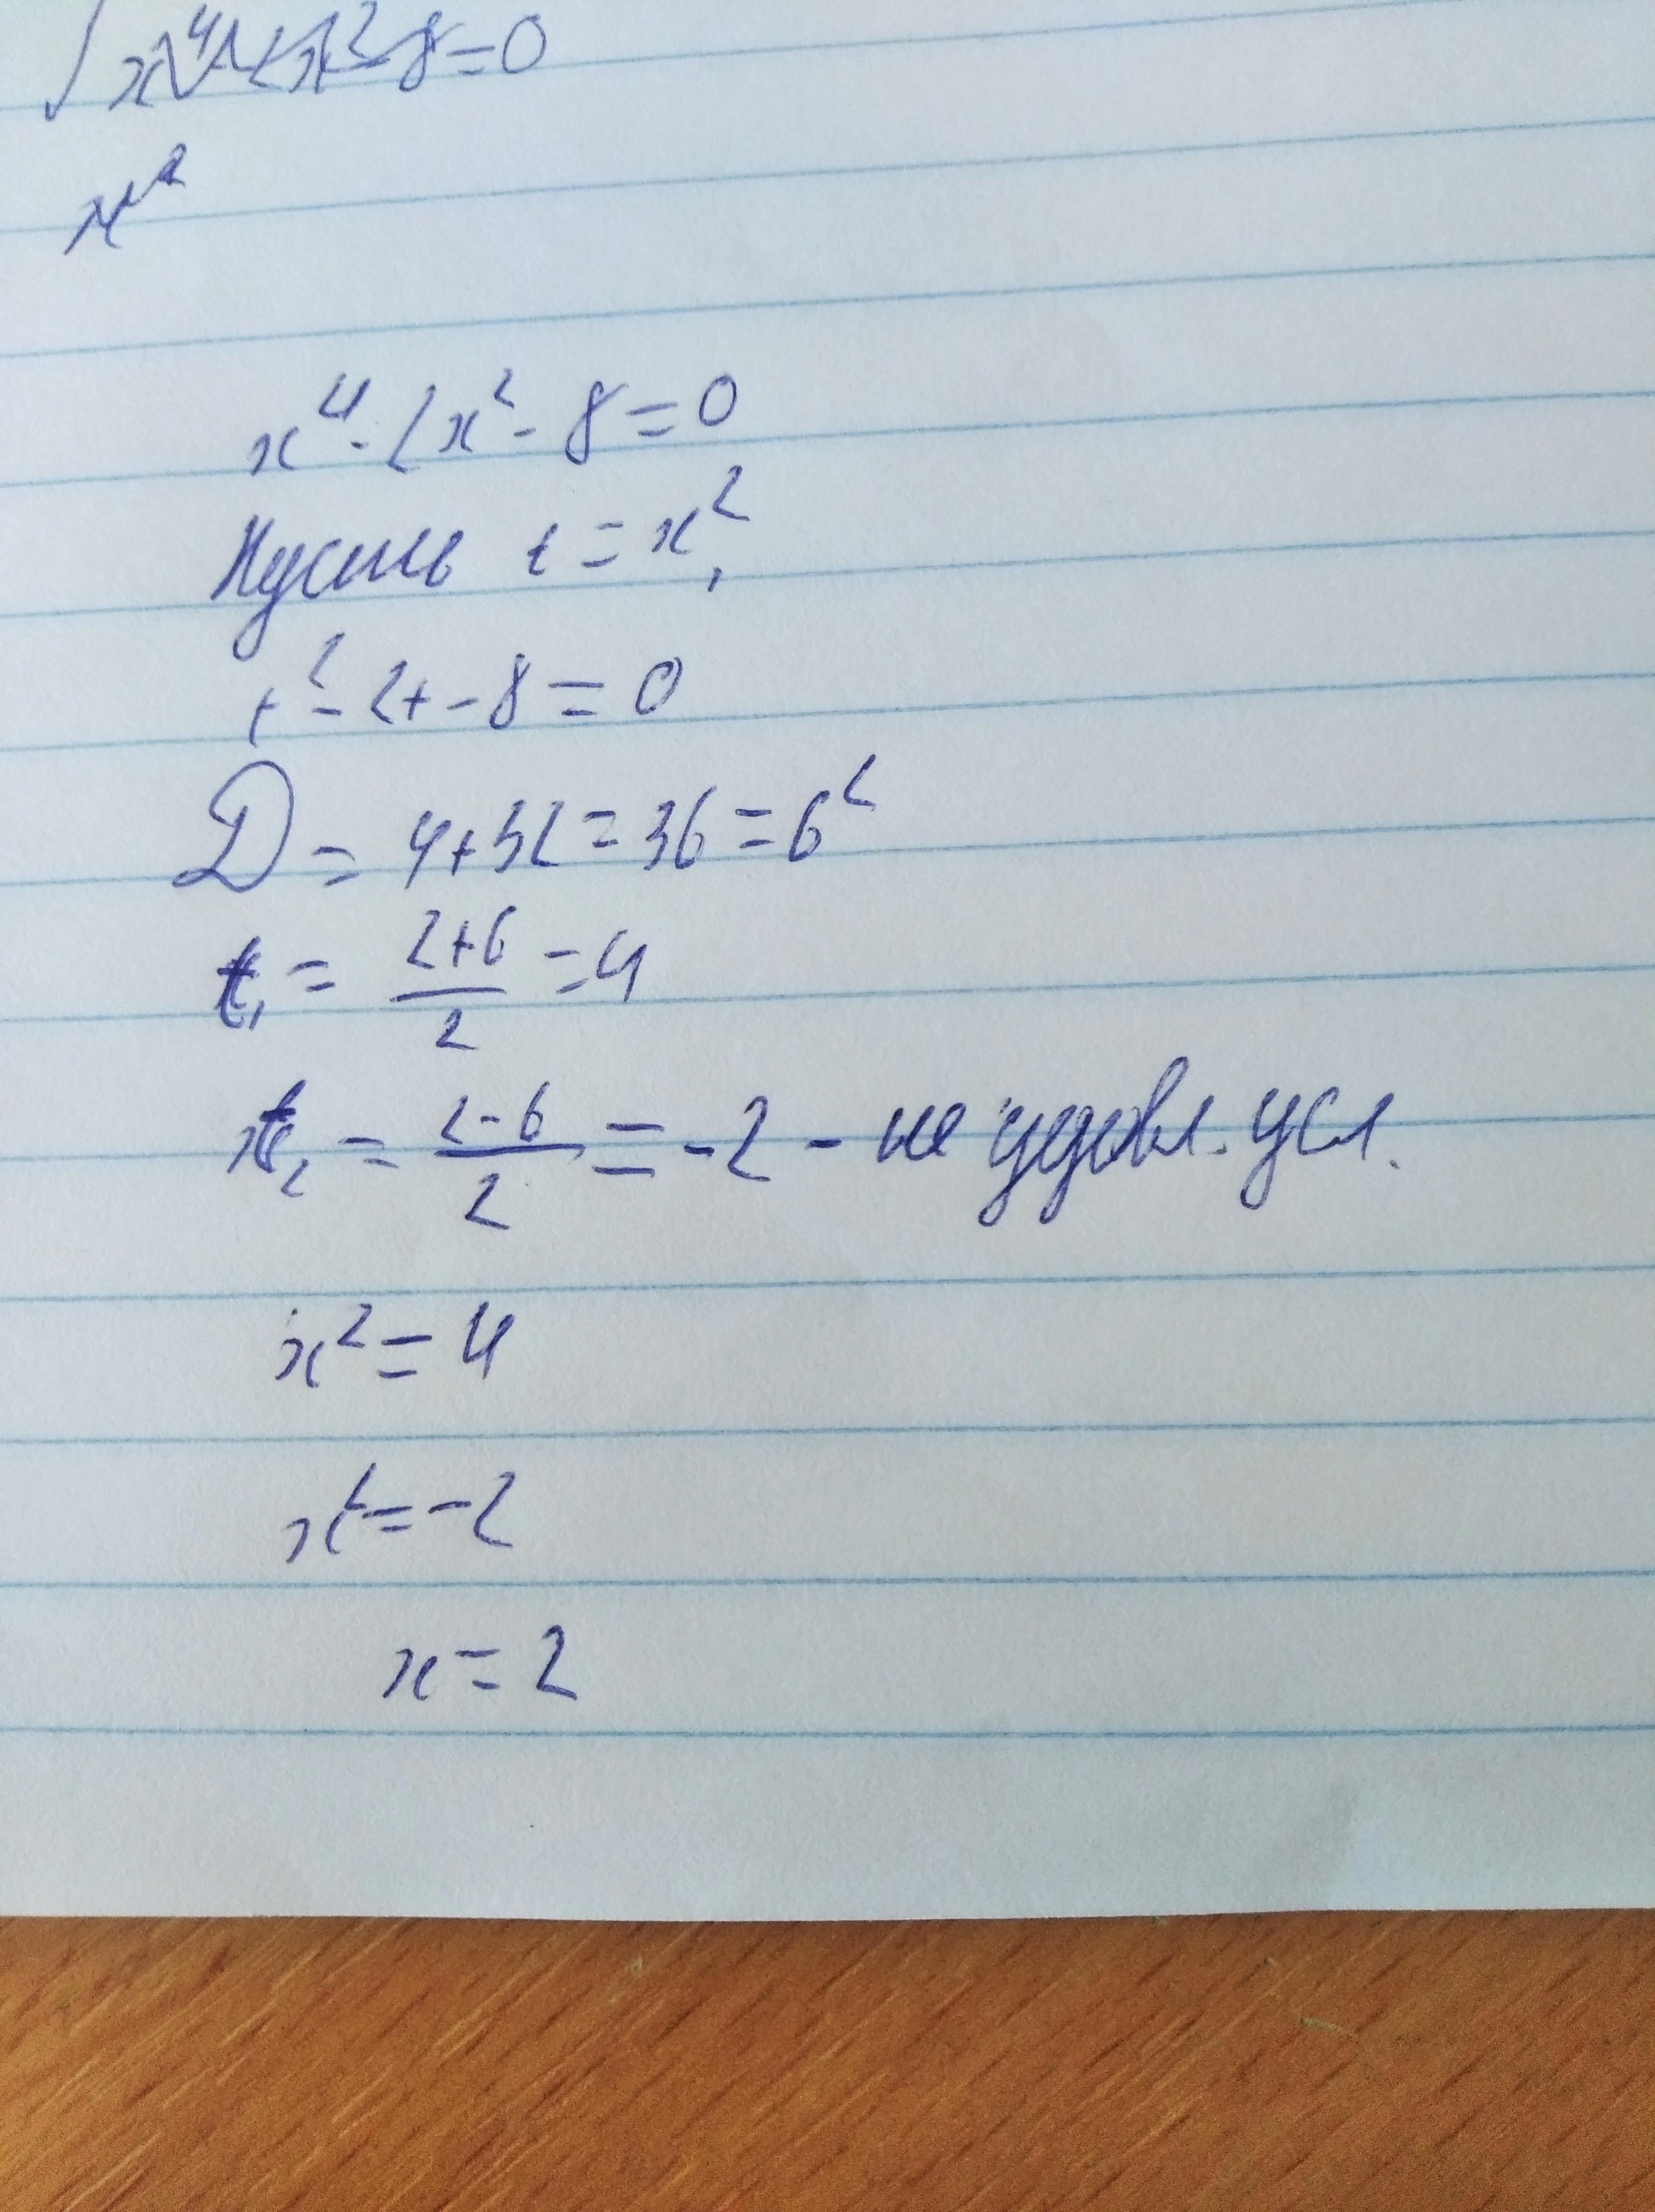 x⁴ + x² - 8 = 0
x²
x⁴ - 2x² - 8 = 0
Пусть t = x²,
t² - 2t - 8 = 0
D = 4 + 32 = 36 = 6²
t₁ = (2+6)/2 = 4
t₂ = (2-6)/2 = -2 - не удовл. усл.
x² = 4
x² = -2
x = 2